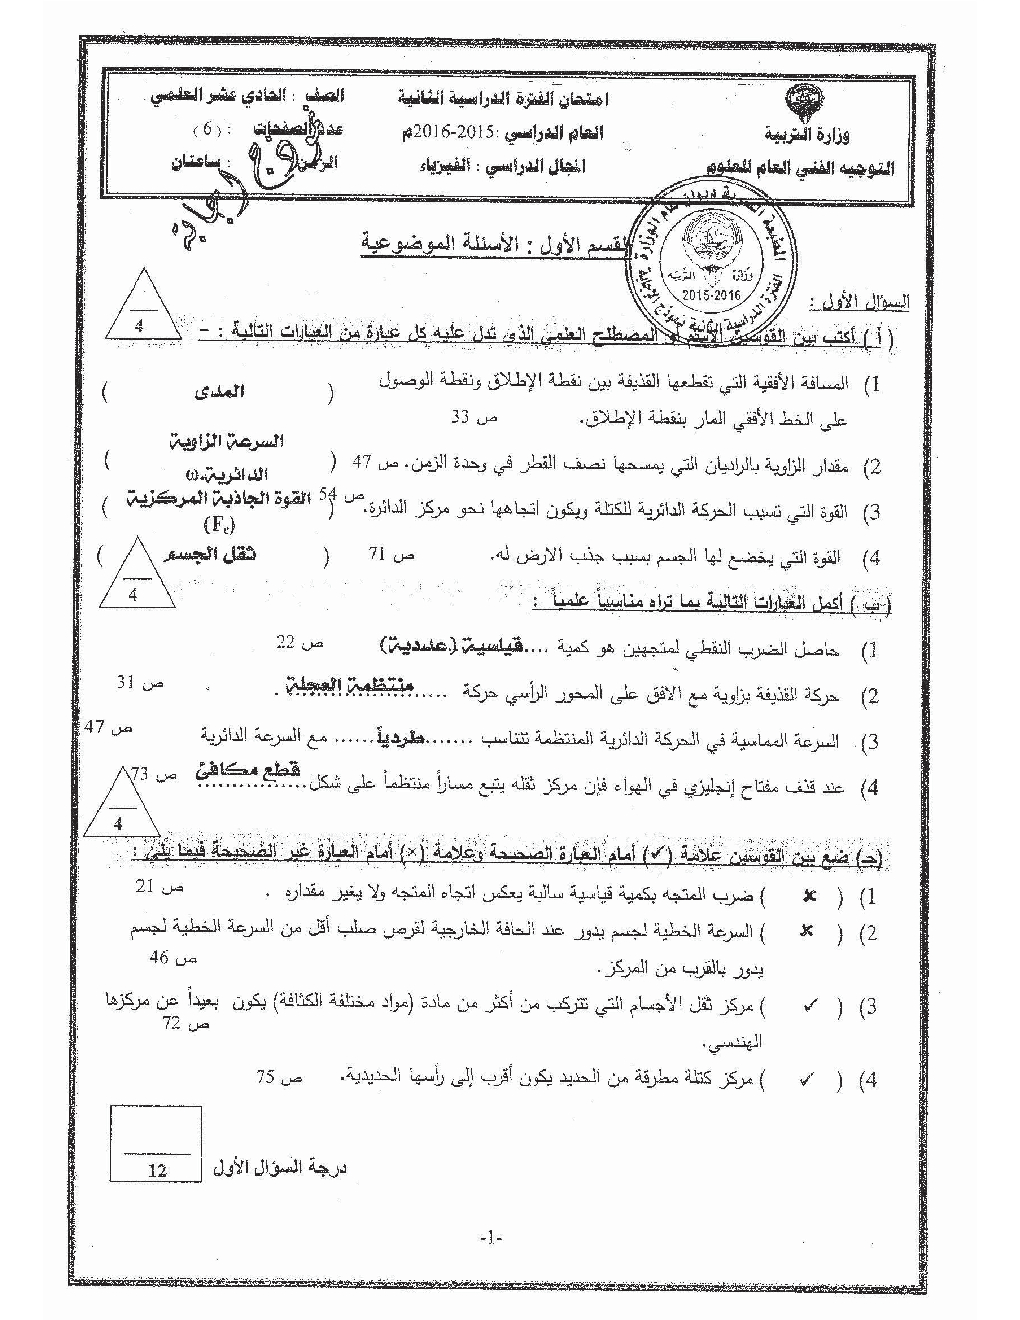 وزارة التربية
التوجيه الفني العام للعلوم
امتحان الفترة الدراسية الثانية
العام الدراسي :2015-2016م
المجال الدراسي : الفيزياء
الصف : الحادي عشر العلمي
عدد الصفحات : (6)
الزمن : ساعتان
نموذج إجابة
القسم الأول : الأسئلة الموضوعية
وزارة التربية
2015-2016
السؤال الأول :
4
( أ ) أكتب بين القوسين الاسم أو المصطلح العلمي الذي تدل عليه كل عبارة من العبارات التالية : -
1) المسافة الأفقية التي تقطعها القذيفة بين نقطة الإطلاق ونقطة الوصول ( المدى )
على الخط الأفقي المار بنقطة الإطلاق. ص 33
السرعة الزاوية
2) مقدار الزاوية بالراديان التي يمسحها نصف القطر في وحدة الزمن. ص 47 ( الدائرية.ω )
3) القوة التي تسبب الحركة الدائرية للكتلة ويكون اتجاهها نحو مركز الدائرة. ص 54 ( القوة الجاذبة المركزية )
(Fc)
4) القوة التي يخضع لها الجسم بسبب جذب الارض له. ص 71 ( ثقل الجسم )
4
( ب ) أكمل العبارات التالية بما تراه مناسباً علمياً :
1) حاصل الضرب النقطي لمتجهين هو كمية ....قياسية (.عددية) ص 22
2) حركة القذيفة بزاوية مع الافق على المحور الرأسي حركة ......منتظمة العجلة . ص 31
3) السرعة المماسية في الحركة الدائرية المنتظمة تتناسب .......طردياً...... مع السرعة الدائرية ص 47
4) عند قذف مفتاح إنجليزي في الهواء فإن مركز ثقله يتبع مساراً منتظماً على شكل قطع مكافئ ص 73
4
(جـ) ضع بين القوسين علامة (✓) أمام العبارة الصحيحة وعلامة (×) أمام العبارة غير الصحيحة فيما يلي :
1) ( × ) ضرب المتجه بكمية قياسية سالبة يعكس اتجاه المتجه ولا يغير مقداره . ص 21
2) ( × ) السرعة الخطية لجسم يدور عند الحافة الخارجية لقرص صلب أقل من السرعة الخطية لجسم
يدور بالقرب من المركز. ص 46
3) ( ✓ ) مركز ثقل الأجسام التي تتركب من أكثر من مادة (مواد مختلفة الكثافة) يكون بعيداً عن مركزها
الهندسي. ص 72
4) ( ✓ ) مركز كتلة مطرقة من الحديد يكون أقرب إلى رأسها الحديدية. ص 75
درجة السؤال الأول
12
-1-